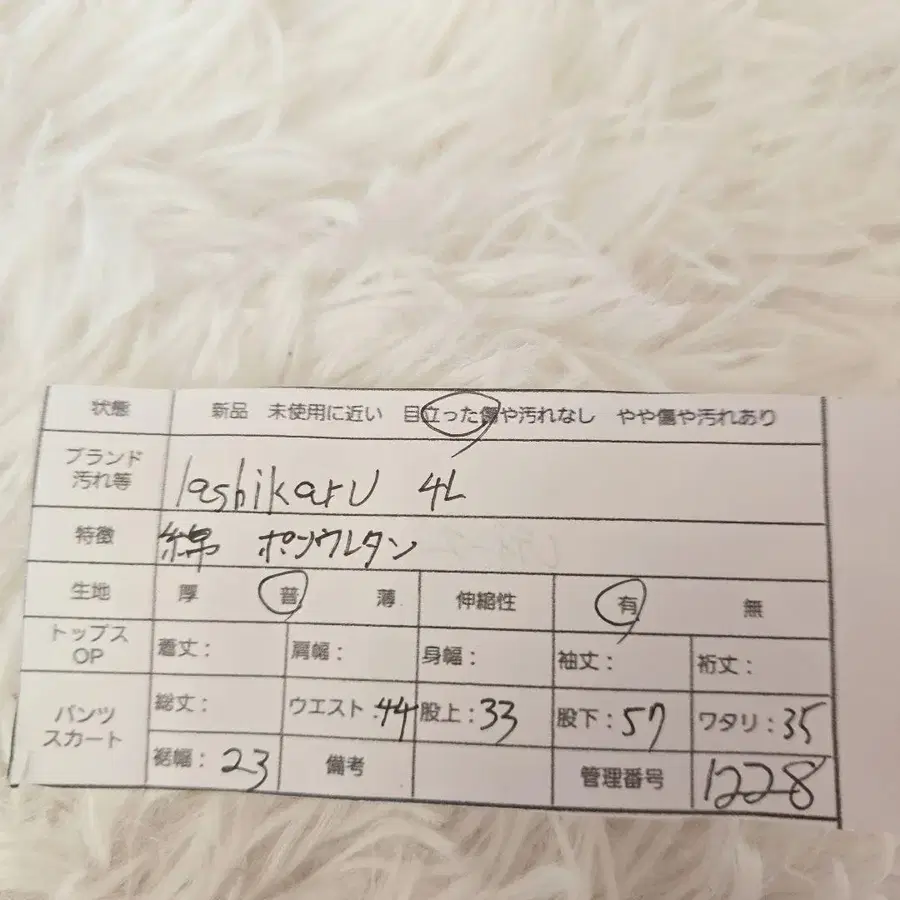 状態 新品 未使用に近い 目立った傷や汚れなし やや傷や汚れあり
ブランド
汚れ等 lashikaru 4L
特徴 綿 ポリウレタン
生地 厚 普 薄 伸縮性 有 無
トップス
OP 着丈： 肩幅： 身幅： 袖丈： 裄丈：
パンツ
スカート 総丈： ウエスト：44 股上：33 股下：57 ワタリ：35
裾幅：23 備考 管理番号 1228